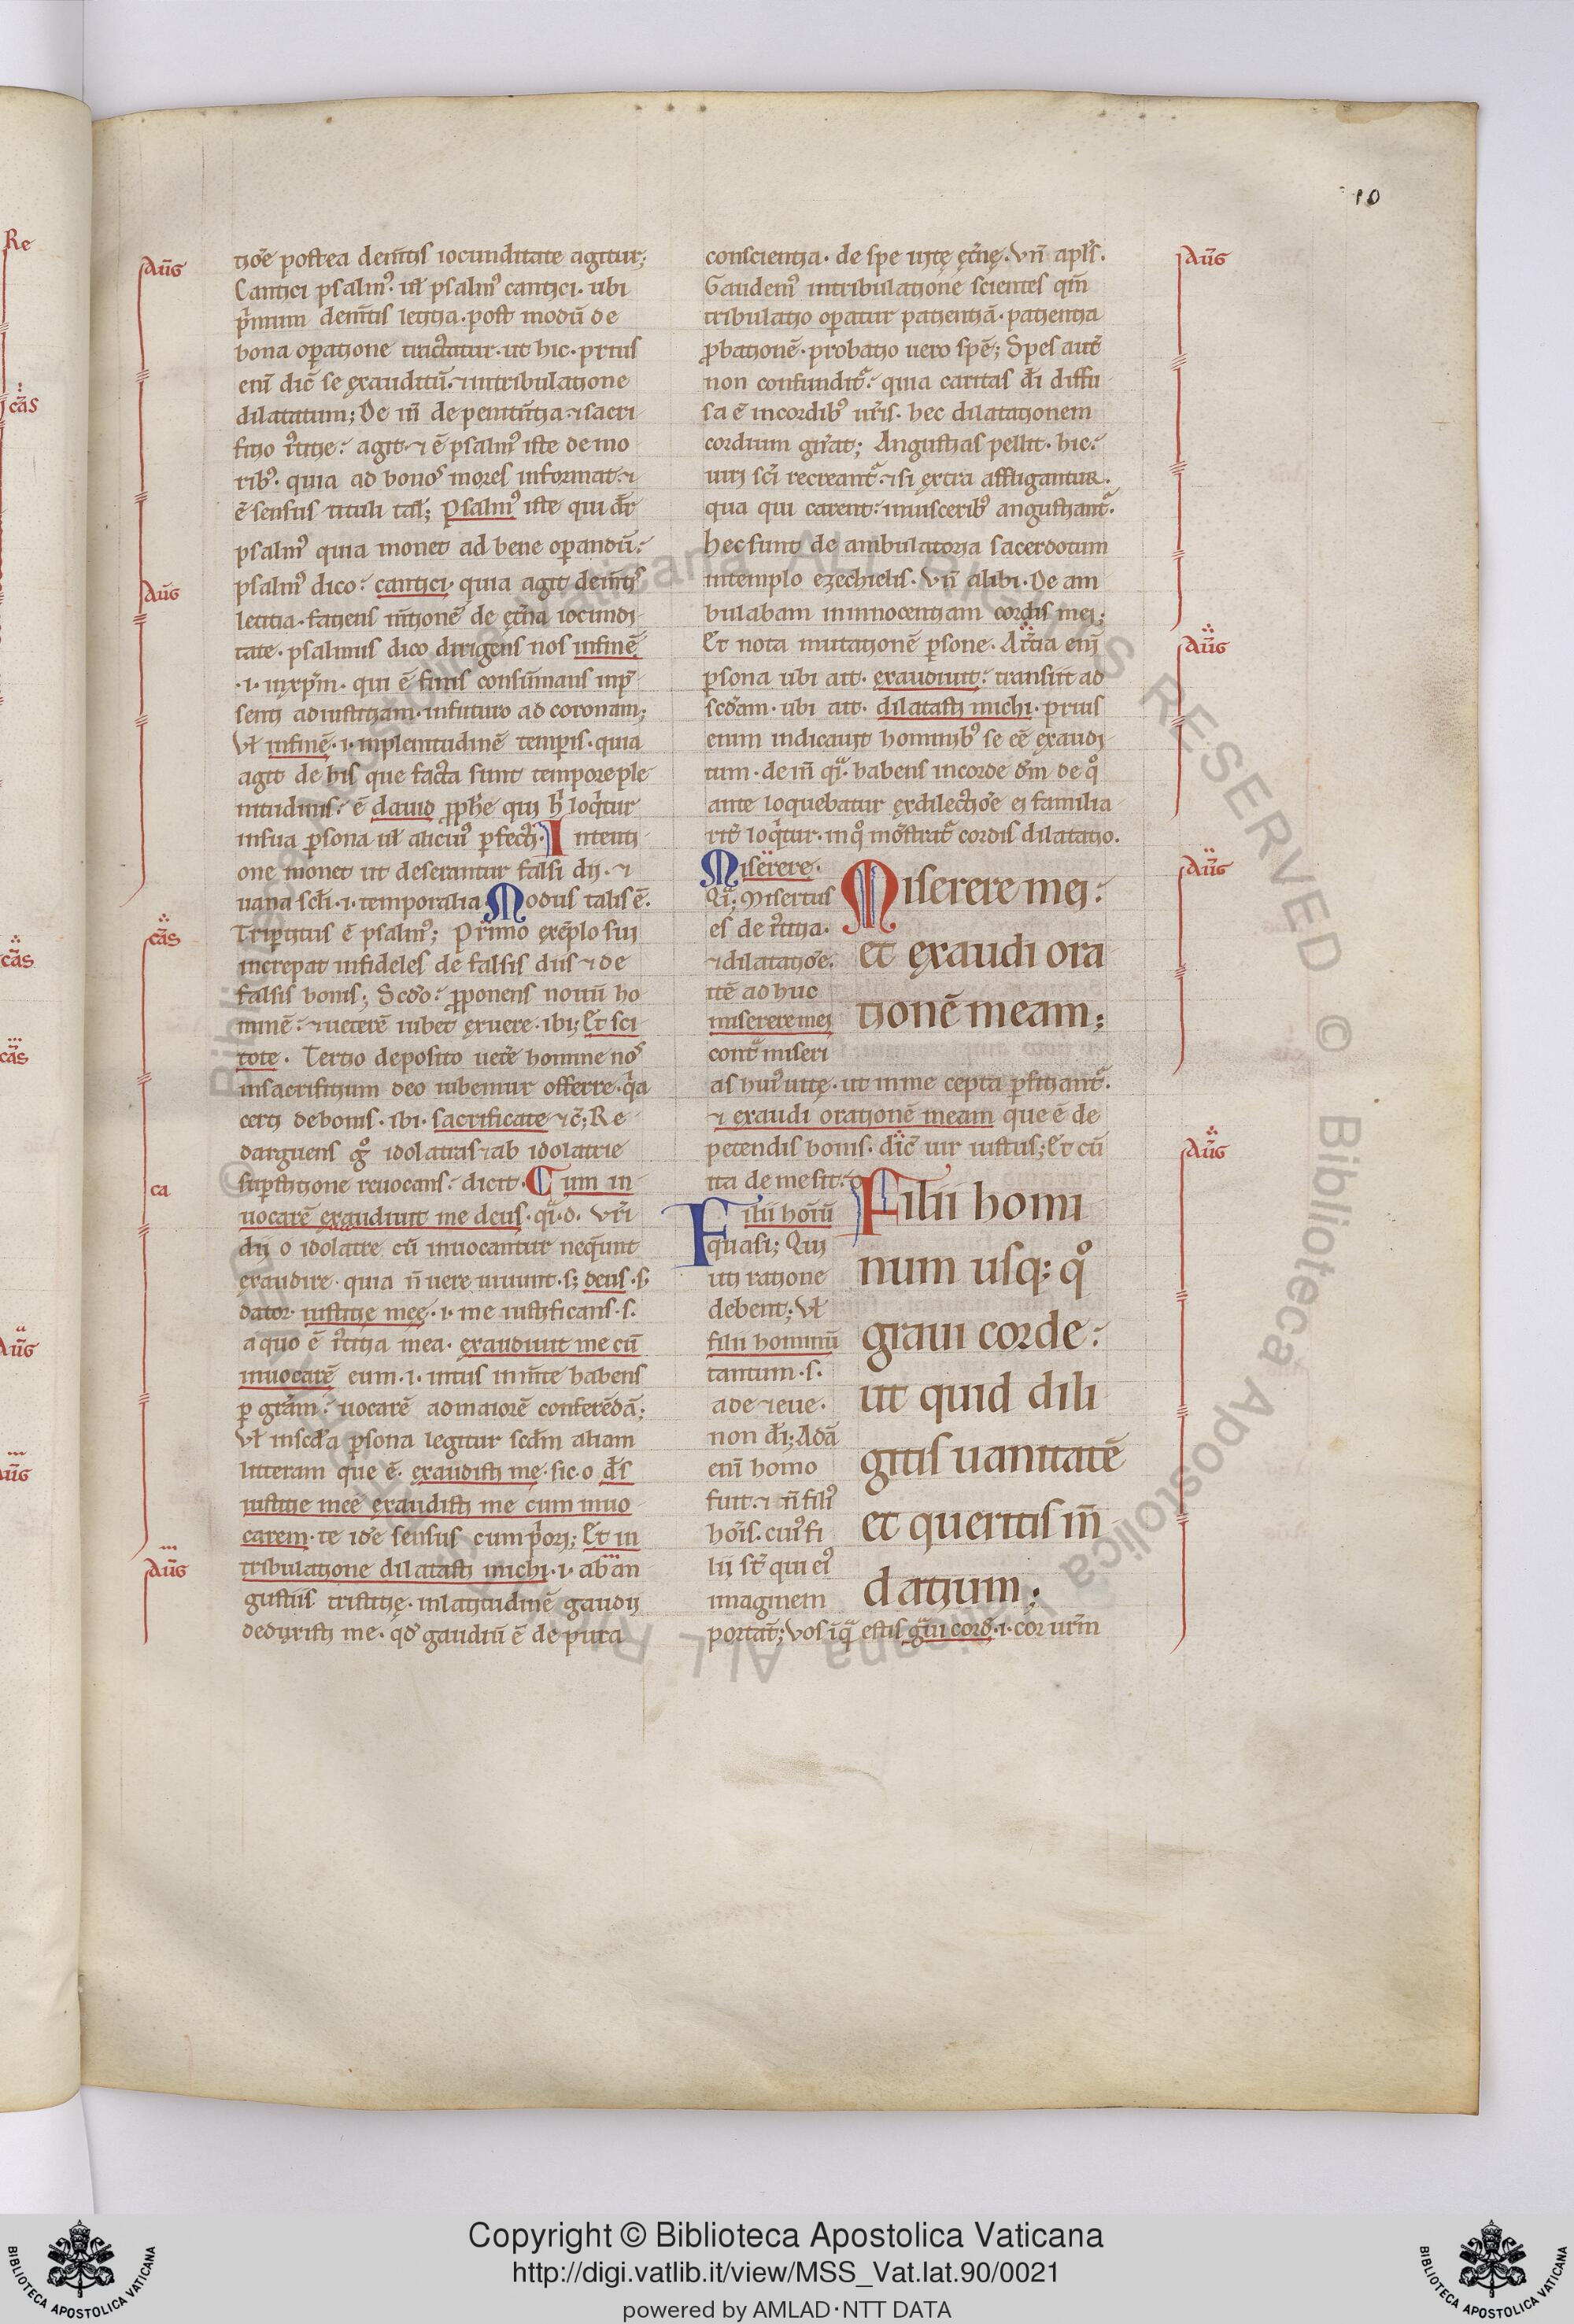 10
Re
cãs
cãs
cãs
Aũg
Aũg
Aũg
tiõe postea dem̃tis iocunditate agitur;
Cantici psalm9. ul̃ psalm9 cantici. ubi
p̃mum dem̃tis letitia. post modũ de
bona op̱atione tractatur. ut hic. prius
enĩ dic̃ se ęxauditũ. ⁊ intribulatione
dilatatum; De iñ de penitẽtia ⁊ sacri
fitio
agit. ⁊ ẽ psalm9 iste de mo
rib9. quia ad bonos mores informat. ⁊
ẽ sensus tituli tal̃; Psalm9 iste qui dr̃
psalm9 quia monet ad bene op̱andũ.
psalm9 dico. cantici. quia agit dem̃tis
letitia. fatiens m̃tionẽ de ęt̃na iocundi
tate. psalmus dico dirigens nos infinẽ
.i. inxp̃m. qui ẽ finis consũmans inp̃
senti adiustitiam. infuturo ad coronam;
Vl̃ infinẽ. i. inplenitudinẽ temp̱is. quia
agit de his que facta sunt tempore ple
nitudinis. ẽ dauid p̱phẽ qui h̃ loq̃tur
insua p̱sona ul̃ alicui9 p̱fecti. Intenti
one monet ut deserantur falsi dii. ⁊
uana scl̃i. i. temporalia. Modus talis ẽ.
Aũg
Cãs
Tripertitus ẽ psalm9; Primo exẽplo sui
increpat infideles de falsis diis ⁊ de
falsis bonis; Scd̃o. p̱ponens nouũ ho
minẽ. ⁊ ueterẽ iubet ęxuere. ibi; Et sci
tote. Tertio deposito uetẽ homine nos
insacrifitium deo iubemur offerre. q̃a
certi debonis. ibi. sacrificate ⁊ c̃; Re
darguens g̊ idolatras ⁊ ab idolatrie
sup̱stitione reuocans. dicit. Cum in
ca
uocarẽ exaudiuit me deus. q̃i. d. Vr̃i
dii o idolatre cũ inuocantur neq̃unt
exaudire. quia ñ uere uiuunt. s; deus. s.
dator. iustitie meę. i. me iustificans. s.
a quo ẽ
mea. ęxaudiuit me cũ
inuocarẽ eum. i. intus in m̃te habens
p̱ gram̃. uocarẽ admaiorẽ conferẽdã;
Vl̃ inscd̃a p̱sona legitur scd̃m aliam
litteram que ẽ. exaudisti me. sic. o d̃s
iustitie mee exaudisti me cum inuo
carem. te idẽ sensus cum p̃ori; Et in
Aũg
tribulatione dilatasti michi. i. ab an
gustiis tristitię. inlatitudinẽ gaudii
deduxisti me. qd̃ gaudiũ ẽ de pura
Aũg
conscientia. de spe uitę ęt̃nę. Vñ apl̃s.
Gaudem9 intribulatione scientes qm̃
tribulatio op̱atur patientiã. patientia
p̱bationẽ. probatio uero spẽ; Spes aut̃
non confundit̃. quia caritas d̃i diffu
sa ẽ incordib9 ur̃is. hec dilatationem
cordium
; Angustias pellit. hic.
uiri sc̃i recreant̃. ⁊ si ęxtra affligantur.
qua qui carent. inuiscerib9 angustiant̃.
hec sunt de ambulatoria sacerdotum
intemplo ezechielis. Vñ alibi. De am
bulabam ininnocentiam cordis mei;
Aũg
Et nota mutationẽ p̱sone. A t̃tia enĩ
p̱sona ubi ait. ęxaudiuit. transiit ad
scd̃am. ubi ait. dilatasti michi. prius
enim indicauit hominib9 se eẽ ęxaudi
tum. de iñ q̃i. habens incorde d̃m de q̊
ante loquebatur ęxdilectiõe ei familia
rit̃ loq̃tur. inq̊ mõstrat̃ cordis dilatatio.
Aũg
Miserere.
Q̃i; Misertus
es de
⁊ dilatatiõe.
itẽ ad huc
miserere mei
cont̃ miseri
Miserere mei.
et ęxaudi ora
tionẽ meam;
as hui9 uitę. ut in me cepta p̱fitiant̃.
⁊ exaudi orationẽ meam que ẽ de
petendis bonis. dic̃ uir iustus; Et cũ
ita de me sit. o
Aũg
Filii hoĩũ
quasi; Qui
uti ratione
debent; Vl̃
filii hominũ
tantum. s.
ade ⁊ eue.
non d̃i; Adã
enĩ homo
fuit. ⁊ ñ fili9
hoĩs. cui9 fi
lii st̃ qui ei9
imaginem
Filii homi
num usq; q̊
graui corde.
ut quid dili
gitis uanitatẽ
et queritis m̃
datium;
portat̃; Vos ĩq̃ estis g̃ui cord̃. i. cor ur̃m
© Biblioteca Apostolica Vaticana ALL RIGHTS RESERVED
Copyright © Biblioteca Apostolica Vaticana
http://digi.vatlib.it/view/MSS_Vat.lat.90/0021
powered by AMLAD·NTT DATA
BIBLIOTECA APOSTOLICA VATICANA
BIBLIOTECA APOSTOLICA VATICANA